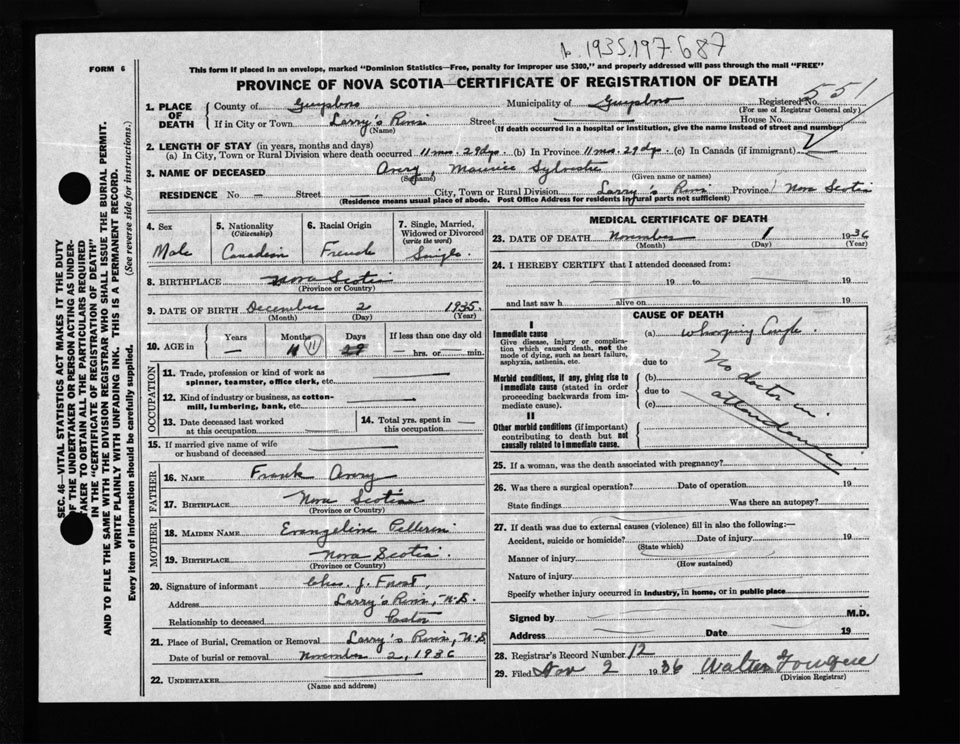 1935.197.687
FORM 6
This form if placed in an envelope, marked "Dominion Statistics—Free, penalty for improper use $300," and properly addressed will pass through the mail "FREE"
PROVINCE OF NOVA SCOTIA—CERTIFICATE OF REGISTRATION OF DEATH
1. PLACE OF DEATH
County of Guysboro Municipality of Guysboro Registered No. 551
(For use of Registrar General only)
If in City or Town Larry's River Street House No.
(Name) (If death occurred in a hospital or institution, give the name instead of street and number)
2. LENGTH OF STAY (in years, months and days)
(a) In City, Town or Rural Division where death occurred 11 mos. 29 dys. (b) In Province 11 mos. 29 dys. (c) In Canada (if immigrant)
3. NAME OF DECEASED Avery, Maurice Sylvester
(Surname) (Given name or names)
RESIDENCE No. — Street City, Town or Rural Division Larry's River Province Nova Scotia
(Residence means usual place of abode. Post Office Address for residents in rural parts not sufficient)
4. Sex
Male
5. Nationality
(Citizenship)
Canadian
6. Racial Origin
French
7. Single, Married, Widowed or Divorced
(write the word)
Single
8. BIRTHPLACE Nova Scotia
(Province or Country)
9. DATE OF BIRTH December 2 1935
(Month) (Day) (Year)
10. AGE in
Years Months Days If less than one day old
— 11 (11) 29 — hrs. or — min.
OCCUPATION
11. Trade, profession or kind of work as
spinner, teamster, office clerk, etc.
12. Kind of industry or business, as cotton-
mill, lumbering, bank, etc.
13. Date deceased last worked
at this occupation
14. Total yrs. spent in
this occupation
15. If married give name of wife
or husband of deceased
FATHER
16. NAME Frank Avery
17. BIRTHPLACE Nova Scotia
(Province or Country)
MOTHER
18. MAIDEN NAME Evangeline Pellerin
19. BIRTHPLACE Nova Scotia
(Province or Country)
20. Signature of informant Chas. J. Frost
Address Larry's River, N.S.
Relationship to deceased Pastor
21. Place of Burial, Cremation or Removal Larry's River, N.S.
Date of burial or removal November 2, 1936
22. UNDERTAKER
(Name and address)
MEDICAL CERTIFICATE OF DEATH
23. DATE OF DEATH November 1 1936
(Month) (Day) (Year)
24. I HEREBY CERTIFY that I attended deceased from:
19 to 19
and last saw h alive on 19
CAUSE OF DEATH
I
Immediate cause
Give disease, injury or complication which caused death, not the mode of dying, such as heart failure, asphyxia, asthenia, etc.
(a) Whooping Cough.
due to
Morbid conditions, if any, giving rise to immediate cause (stated in order proceeding backwards from immediate cause).
(b)
due to
(c)
No doctor in
attendance
II
Other morbid conditions (if important) contributing to death but not causally related to immediate cause.
25. If a woman, was the death associated with pregnancy?
26. Was there a surgical operation? Date of operation 19
State findings Was there an autopsy?
27. If death was due to external causes (violence) fill in also the following:—
Accident, suicide or homicide? Date of injury 19
(State which)
Manner of injury
(How sustained)
Nature of injury
Specify whether injury occurred in industry, in home, or in public place
Signed by M.D.
Address Date 19
28. Registrar's Record Number 12
29. Filed Nov 2 1936 Walter Fougere
(Division Registrar)
SEC. 46—VITAL STATISTICS ACT MAKES IT THE DUTY
OF THE UNDERTAKER OR PERSON ACTING AS UNDER-
TAKER TO OBTAIN ALL THE PARTICULARS REQUIRED
IN THE "CERTIFICATE OF REGISTRATION OF DEATH"
AND TO FILE THE SAME WITH THE DIVISION REGISTRAR WHO SHALL ISSUE THE BURIAL PERMIT.
WRITE PLAINLY WITH UNFADING INK. THIS IS A PERMANENT RECORD.
Every item of information should be carefully supplied. (See reverse side for instructions.)